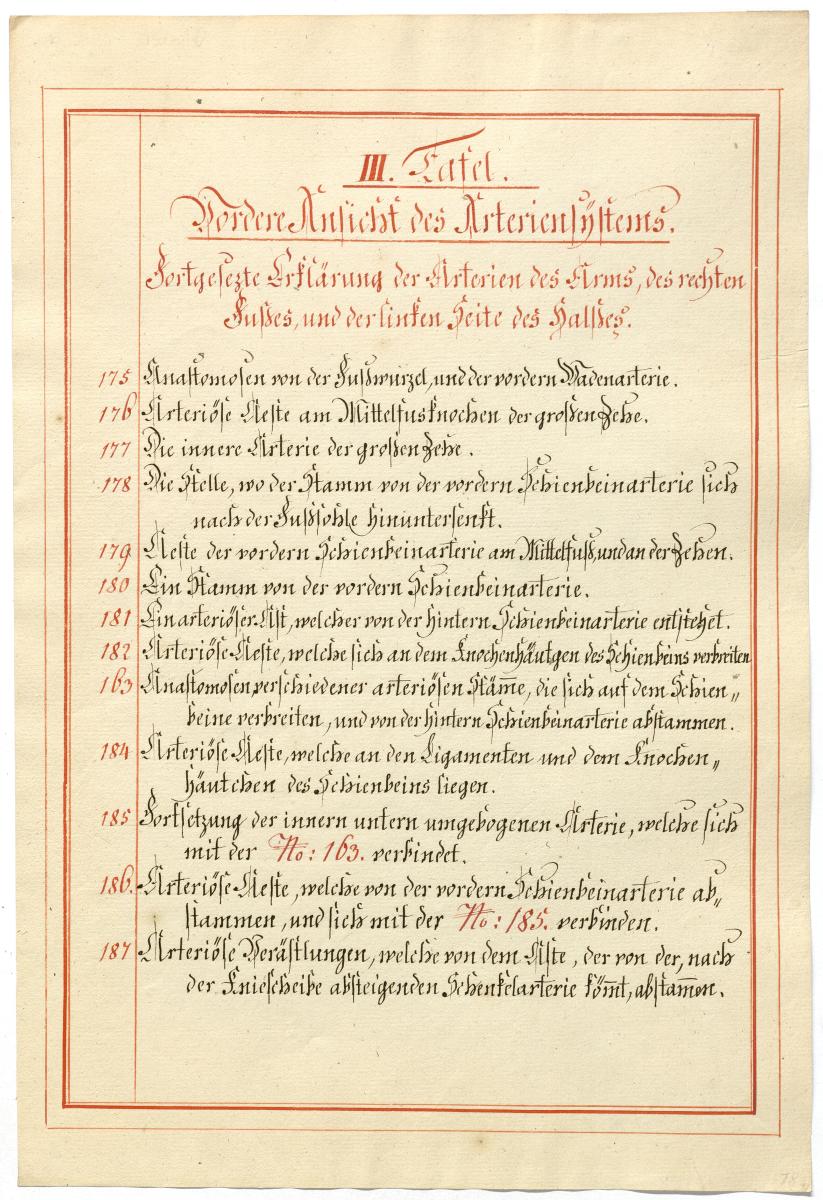 III. Tafel.
Vordere Ansicht des Arteriensÿstems.
Fortgesezte Erklärung der Arterien des Arms, des rechten
Fußes, und der linken Seite des Halßes.
175 Anastomosen von der Fußwurzel, und der vordern Wadenarterie.
176 Arteriöse Aeste am Mittelfusknochen der großen Zehe.
177 Die innere Arterie der großen Zehe.
178 Die Stelle, wo der Stamm von der vordern Schienbeinarterie sich
nach der Fußsohle hinuntersenkt.
179 Aeste der vordern Schienbeinarterie am Mittelfuß, und an der Zehen.
180 Ein Stamm von der vordern Schienbeinarterie.
181 Ein arteriöser Ast, welcher von der hintern Schienbeinarterie entstehet.
182 Arteriöse Aeste, welche sich an dem Knochenhäutgen des Schienbeins verbreiten
163 Anastomosen, verschiedener arteriösen Stäm̅e, die sich auf dem Schien„
beine verbreiten, und von der hintern Schienbeinarterie abstammen.
184 Arteriöse Aeste, welche an den Ligamenten und dem Knochen„
häutchen des Schienbeins liegen.
185 Fortsetzung der innern untern umgebogenen Arterie, welche sich
mit der No: 163. verbindet.
186. Arteriöse Aeste, welche von der vordern Schienbeinarterie ab„
stammen, und sich mit der No: 185. verbinden.
187 Arteriöse Verästlungen, welche von dem Aste, der von der, nach
der Kniescheibe absteigenden Schenkelarterie köm̅t, abstam̅en.
78